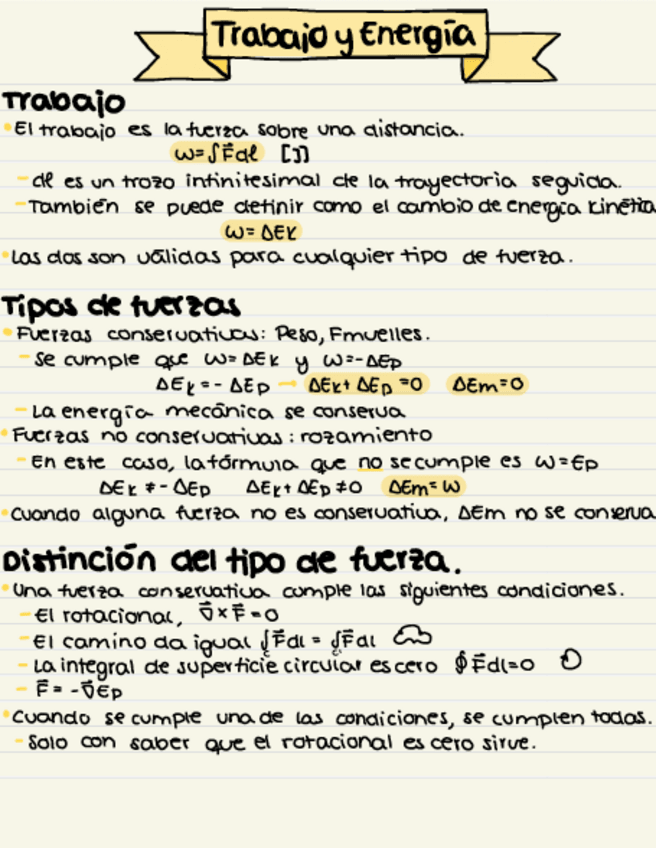 Trabajo y Energía
Trabajo
• El trabajo es la fuerza sobre una distancia.
W=∫F⃗dl [J]
- dl es un trozo infinitesimal de la trayectoria seguida.
- También se puede definir como el cambio de energía kinética
W=ΔEk
• Las dos son válidas para cualquier tipo de fuerza.
Tipos de fuerzas
• Fuerzas conservativas: Peso, Fmuelles.
- Se cumple que W=ΔEk y W=-ΔEp
ΔEk=-ΔEp → ΔEk+ΔEp=0 ΔEm=0
- La energía mecánica se conserva
• Fuerzas no conservativas: rozamiento
- En este caso, la fórmula que no se cumple es W=Ep
ΔEk≠-ΔEp ΔEk+ΔEp≠0 ΔEm=W
• Cuando alguna fuerza no es conservativa, ΔEm no se conserva
Distinción del tipo de fuerza.
• Una fuerza conservativa cumple las siguientes condiciones.
- El rotacional, ∇⃗×F⃗=0
- El camino da igual ∫F⃗dl = ∫F⃗dl
- La integral de superficie circular es cero ∮F⃗dl=0
- F⃗=-∇⃗Ep
• Cuando se cumple una de las condiciones, se cumplen todas.
- Solo con saber que el rotacional es cero sirve.